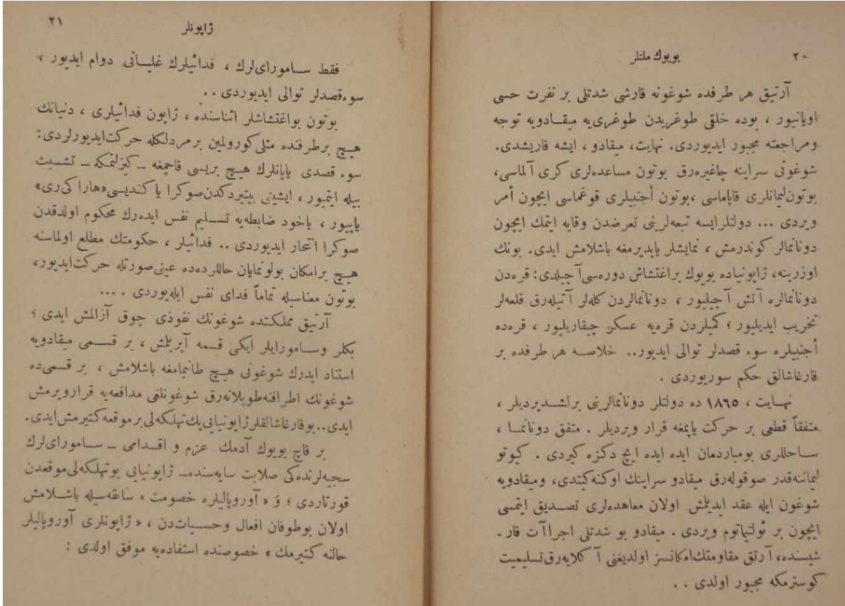 ٢٠
بويوك ملتلر
آرتيق هر طرفده شوغونه قارشى شدتلى بر نفرت حسى
اويانيور ، بوده خلقى طوغريدن طوغرى‌يه ميقادويه توجه
ومراجعته مجبور ايديوردى. نهايت، ميقادو ، ايشه قاريشدى.
شوغونى سراينه چاغيره‌رق بوتون مساعده‌لرى كرى آلماسى،
بوتون ليمانلرى قاپاماسى ، بوتون أجنبيلرى قوغماسى ايچون أمر
ويردى ... دولتلر ايسه تبعه‌لرينى تعرضدن وقايه ايتمك ايچون
دونانمالر كوندرمش ، نمايشلر ياپديرمغه باشلامش ايدى. بونك
اوزرينه، ژاپونياده بويوك بر اغتشاش دوره‌سى آچيلدى: قره‌دن
دونانمالره آتش آچيليور ، دونانمالردن كله‌لر آتيله‌رق قلعه‌لر
تخريب ايديليور ؛ كميلردن قره‌يه عسكر چيقاريليور ، قره‌ده
أجنبيلره سوء قصدلر توالى ايديور.. خلاصه هر طرفده بر
قارغاشالق حكم سوريوردى .
نهايت ، ١٨٦٥ ده دولتلر دونانمالرينى برلشديرديلر ،
متفقاً قطعى بر حركت ياپمغه قرار ويرديلر . متفق دونانما ،
ساحللرى بومباردمان ايده ايده ايچ دكزه كيردى . كيوتو
ليماننه‌قدر صوقوله‌رق ميقادو سراينك اوكنه كيتدى، وميقادويه
شوغون ايله عقد ايديلمش اولان معاهده‌لرى تصديق ايتمسى
ايچون بر ئولتيماتوم ويردى . ميقادو بو شدتلى اجراآت قار-
شيسنده، آرتق مقاومتك امكانسز اولديغنى آكلايه‌رق تسليميت
كوسترمكه مجبور اولدى . .
ژاپونلر
٢١
فقط سامورايلرك ، فدائيلرك غليانى دوام ايديور ،
سوء قصدلر توالى ايديوردى . .
بوتون بو اغتشاشلر اثناسنده ، ژاپون فدائيلرى ، دنيانك
هيچ بر طرفنده مثلى كورولمين بر مردلكله حركت ايديورلردى:
سوء قصدى ياپانلرك هيچ بريسى قاچمغه ـ كيزلنمكه ـ تشبث
بيله ايتميور ، ايشينى بيتيردكدن صوكرا يا كنديسى «هارا كى رى»
ياپيور ، ياخود ضابطه‌يه تسليم نفس ايده‌رك محكوم اولدقدن
صوكرا انتحار ايديوردى .. فدائيلر ، حكومتك مطلع اولماسنه
هيچ بر امكان بولونمايان حاللرده‌ده عينى صورتله حركت ايديور،
بوتون معناسيله تماماً فداى نفس ايله‌يوردى . ...
آرتيق مملكتده شوغونك نفوذى چوق آزالمش ايدى ؛
بكلر وسامورايلر ايكى قسمه آيريلمش ، بر قسمى ميقادويه
استناد ايدرك شوغونى هيچ طانيمامغه باشلامش ، بر قسمى‌ده
شوغونك اطرافنه طوپلانه‌رق شوغونلغى مدافعه‌يه قرار ويرمش
ايدى.. بو قارغاشالقلر ژاپونيايى پك تهلكه‌لى بر موقعه كتيرمش ايدى.
بر قاچ بويوك آدمك عزم و اقدامى ـ سامورايلرك
سجيه‌لرنده‌كى صلابت سايه‌سنده ـ ژاپونيايى بو تهلكه‌لى موقعدن
قورتاردى ؛ وَ « آوروپاليلره خصومت » سائقه‌سيله باشلامش
اولان بو طوفان افعال وحسيات‌دن ، « ژاپونلرى آوروپاليلر
حالنه كتيرمك » خصوصنده استفاده‌يه موفق اولدى :